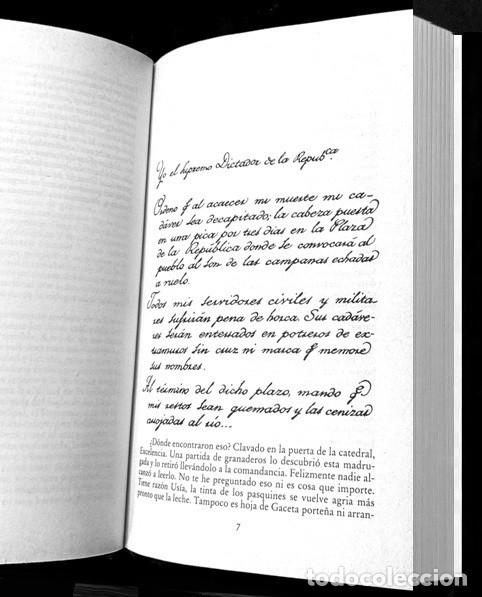 Yo el Supremo Dictador de la Repub^ca.
Ordeno q̃ al acaecer mi muerte mi ca-
dáver sea decapitado; la cabeza puesta
en una pica por tres días en la Plaza
de la República donde se convocará al
pueblo al son de las campanas echadas
a vuelo.
Todos mis servidores civiles y milita-
res sufrirán pena de horca. Sus cadáve-
res serán enterrados en potreros de ex-
tramuros sin cruz ni marca q̃ memore
sus nombres.
Al término del dicho plazo, mando q̃
mis restos sean quemados y las cenizas
arrojadas al río...
¿Dónde encontraron eso? Clavado en la puerta de la catedral,
Excelencia. Una partida de granaderos lo descubrió esta madru-
gada y lo retiró llevándolo a la comandancia. Felizmente nadie al-
canzó a leerlo. No te he preguntado eso ni es cosa que importe.
Tiene razón Usía, la tinta de los pasquines se vuelve agria más
pronto que la leche. Tampoco es hoja de Gaceta porteña ni arran-
7
todocoleccion